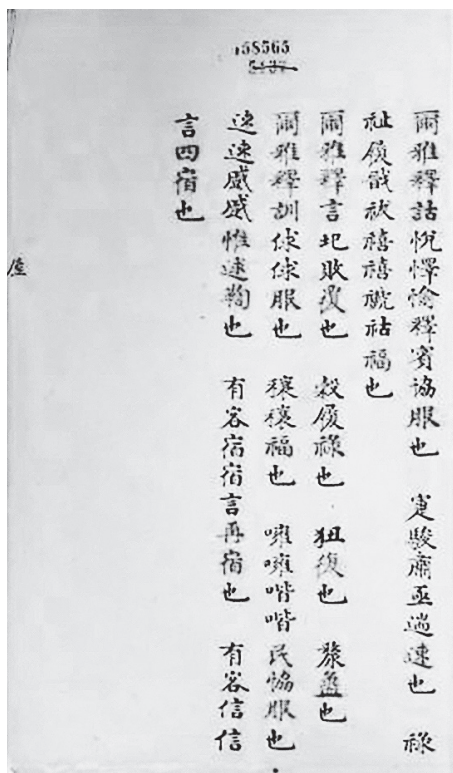 158565
爾雅釋詁悅懌愉釋賓協服也 寁駿肅亟遄速也 祿
祉履戩祓禧禠祜福也
爾雅釋言圮敗覆也 穀履祿也 狃復也 蔡盝也
爾雅釋訓俅俅服也 穰穰福也 噰噰喈喈民協服也
速速蹙蹙惟逑鞫也 有客宿宿言再宿也 有客信信
言四宿也